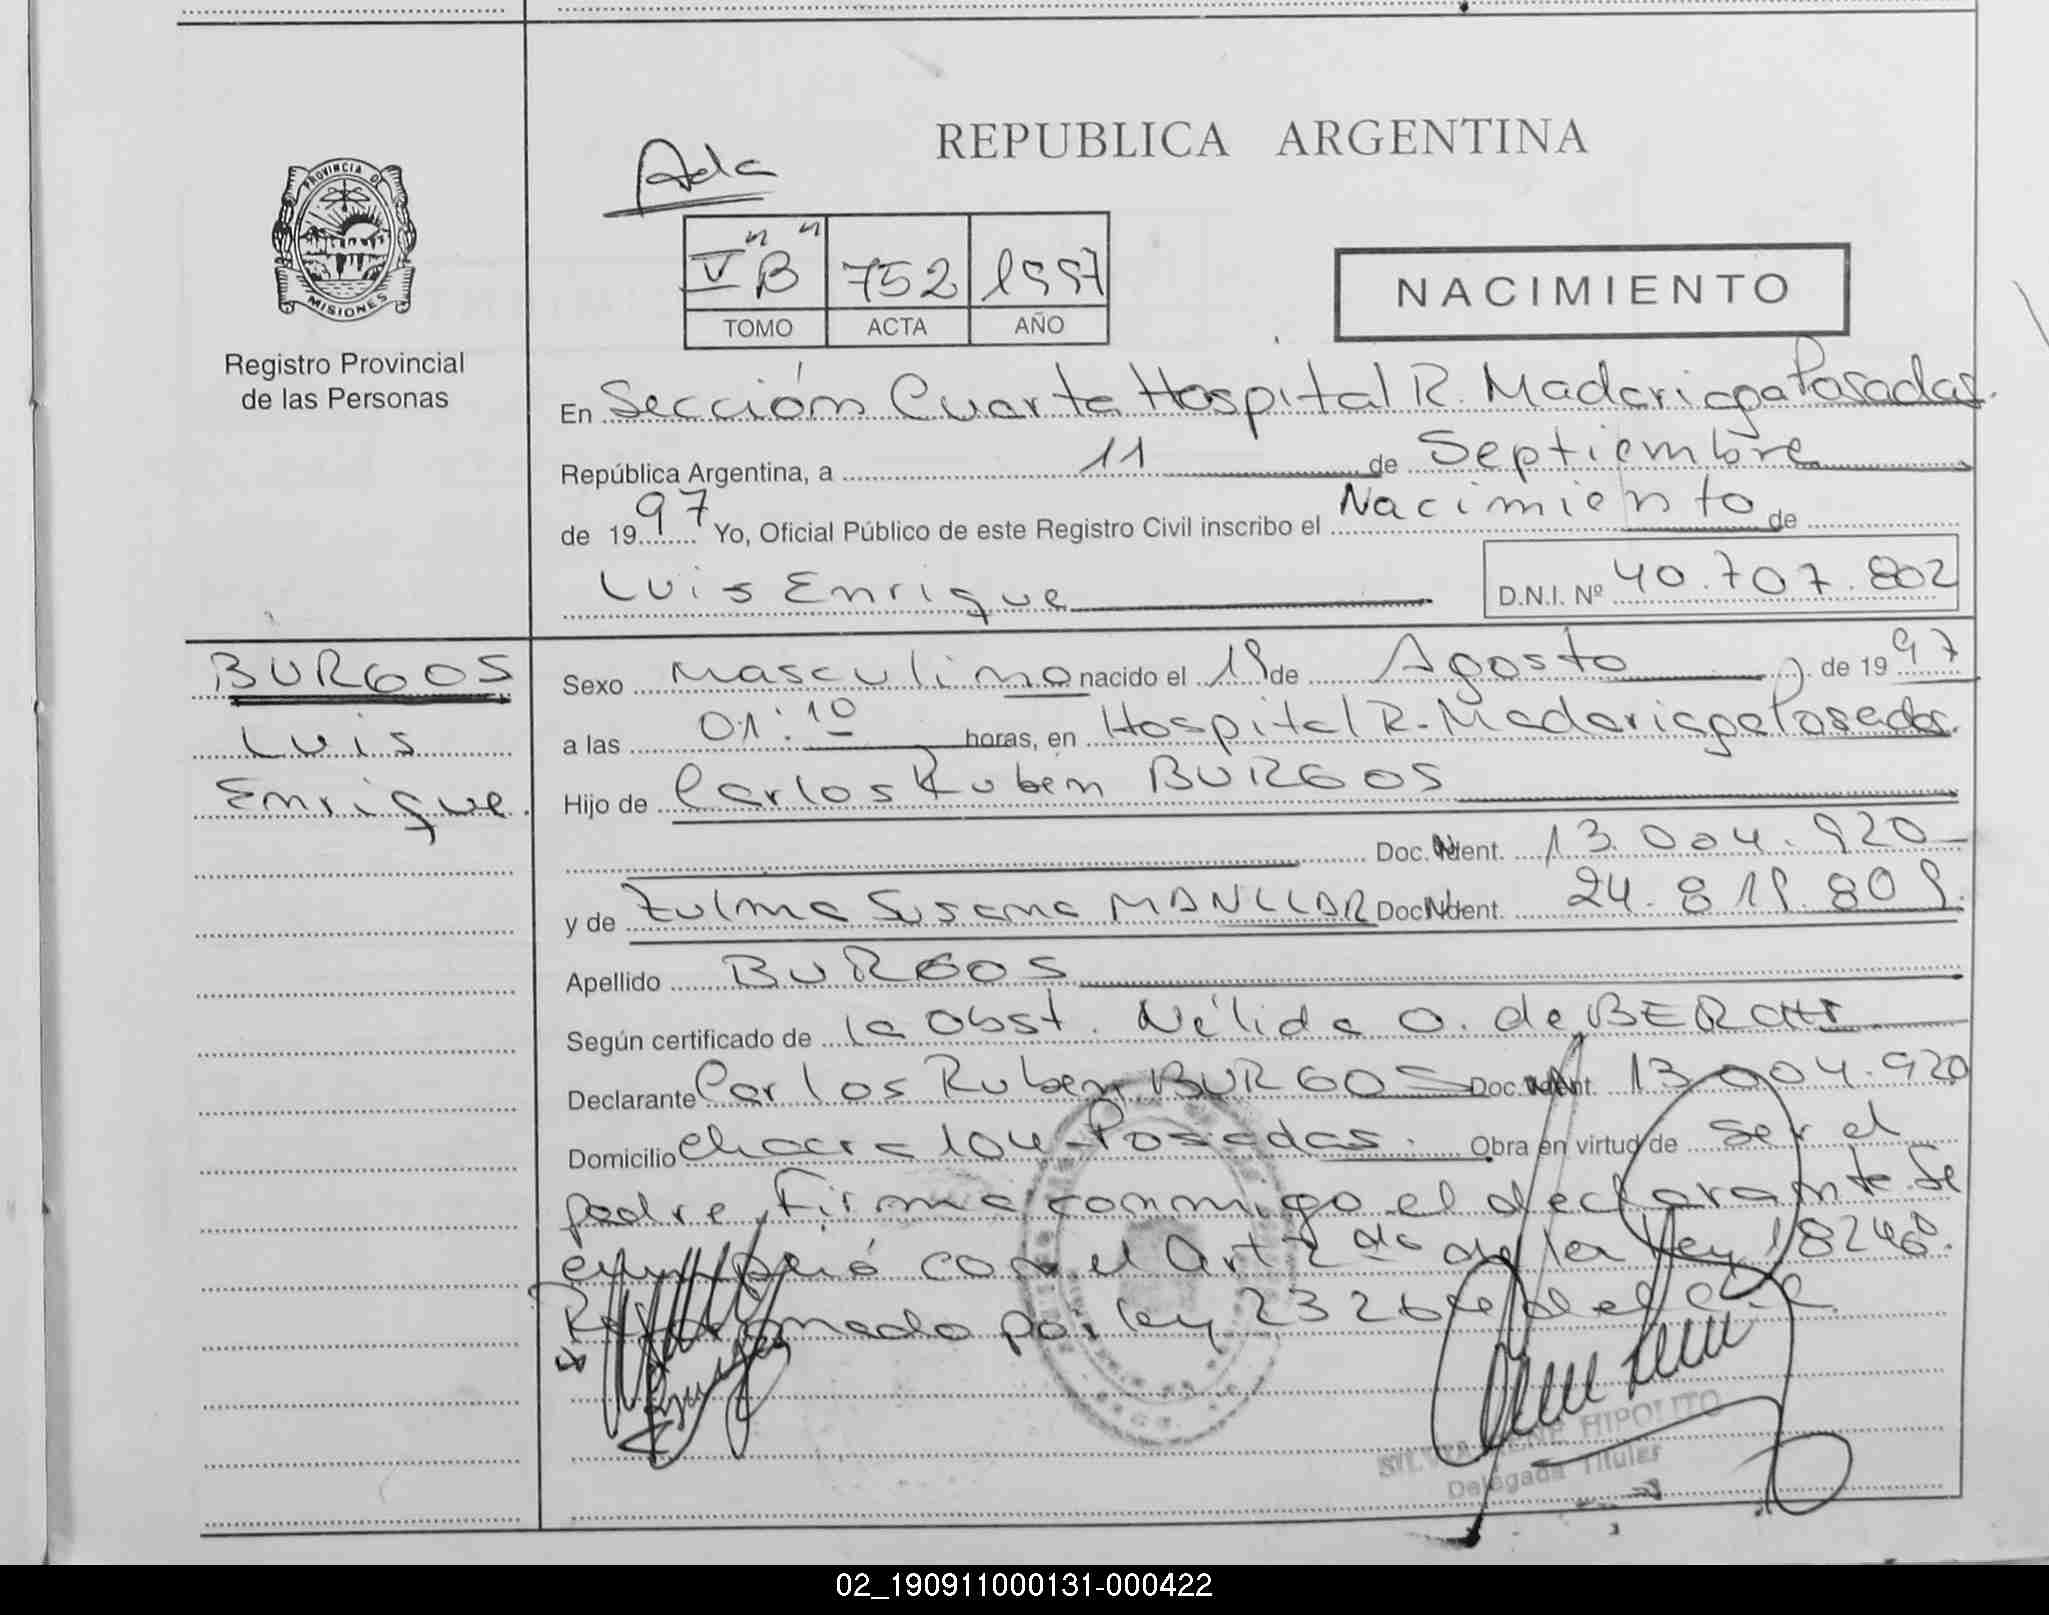 REPUBLICA ARGENTINA
Ada
V "B" 752 1997
TOMO ACTA AÑO
NACIMIENTO
PROVINCIA D
MISIONES
Registro Provincial
de las Personas
En Sección Cuarta Hospital R. Madariaga Posadas.
República Argentina, a 11 de Septiembre
de 1997 Yo, Oficial Público de este Registro Civil inscribo el Nacimiento de
Luis Enrique D.N.I. Nº 40.707.802
BURGOS
Luis
Enrique.
Sexo Masculino nacido el 19 de Agosto de 1997
a las 01:10 horas, en Hospital R. Madariaga Posadas.
Hijo de Carlos Rubén BURGOS
Doc. Ident. 13.004.920
y de Zulma Susana Doc. Ident. 24.819.809.
Apellido BURGOS
Según certificado de la Obst. Nélida O. de
Declarante Carlos Ruben BURGOS Doc. Ident. 13.004.920
Domicilio Chacra 104 - Posadas. Obra en virtud de ser el
padre, Firma conmigo el declarante. Se
con el Art 2 do de la Ley 18248.
Reformado por ley 23264
SILVIA IRENE HIPOLITO
Delegada Titular
02_190911000131-000422